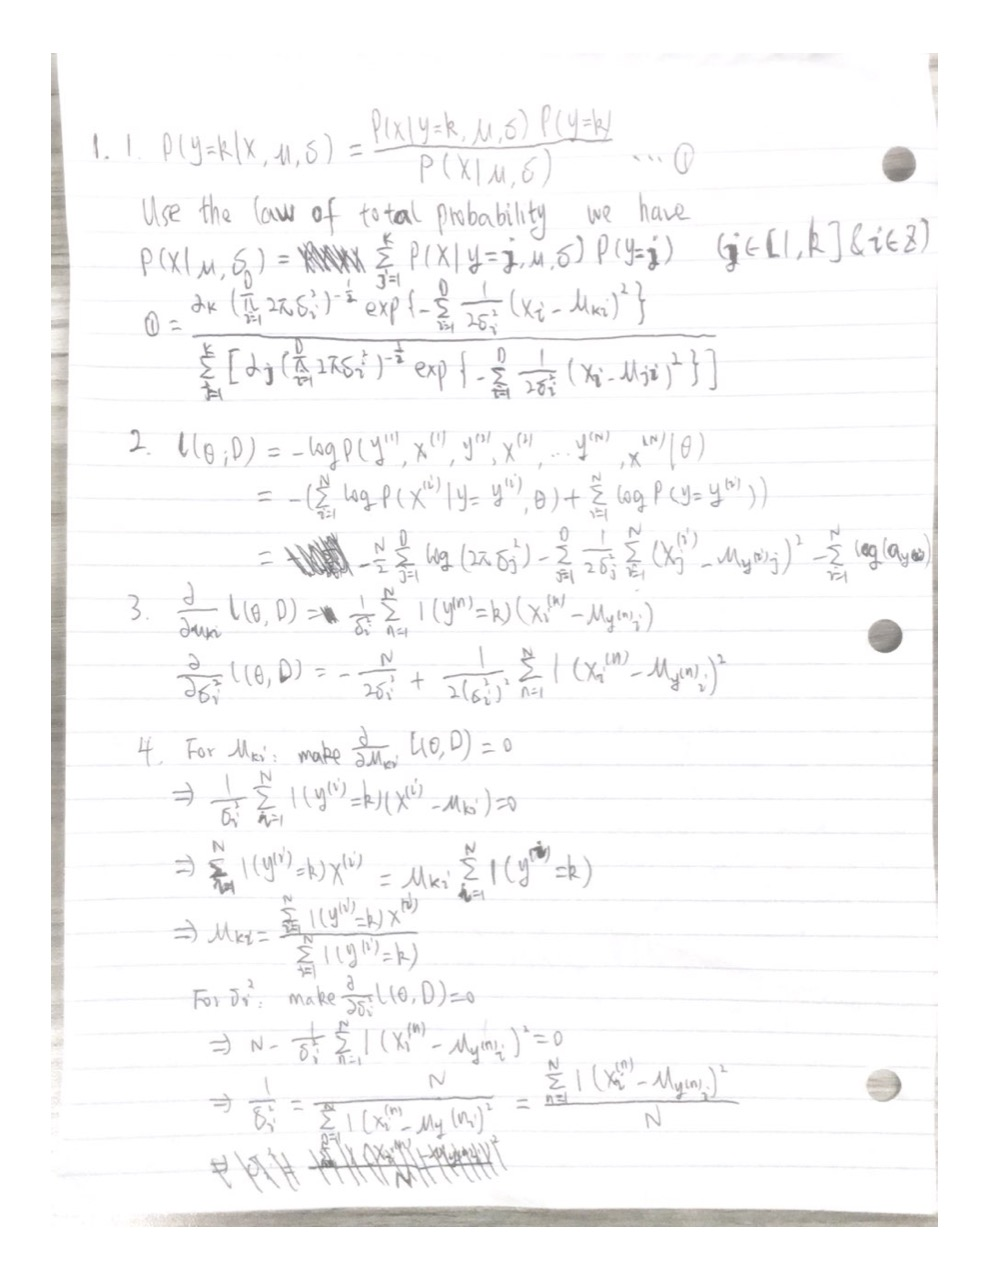 1. 1. P(y=k|x, μ, δ) = P(x|y=k, μ, δ) P(y=k) / P(X|μ, δ) ... ①
Use the law of total probability we have
P(X|μ, δ) = Σ_{j=1}^{K} P(X|y=j, μ, δ) P(y=j) (j∈[1, k] & i∈Z)
① = α_k (∏_{i=1}^{D} 2πδ_i²)^{-1/2} exp{-Σ_{i=1}^{D} 1/(2δ_i²) (x_i - μ_{ki})²} / Σ_{j=1}^{K} [α_j (∏_{i=1}^{D} 2πδ_i²)^{-1/2} exp{-Σ_{i=1}^{D} 1/(2δ_i²) (x_i - μ_{ji})²}]
2. l(θ;D) = -log P(y^{(1)}, x^{(1)}, y^{(2)}, x^{(2)}, ... y^{(N)}, x^{(N)}|θ)
= -(Σ_{i=1}^{N} log P(x^{(i)}|y=y^{(i)}, θ) + Σ_{i=1}^{N} log P(y=y^{(i)}))
= -N/2 Σ_{j=1}^{D} log(2πδ_j²) - Σ_{j=1}^{D} 1/(2δ_j²) Σ_{i=1}^{N} (x_j^{(i)} - μ_{y^{(i)}j})² - Σ_{i=1}^{N} log(α_{y^{(i)}})
3. ∂/∂μ_{ki} l(θ, D) = 1/δ_i² Σ_{n=1}^{N} 1(y^{(n)}=k)(x_i^{(n)} - μ_{y^{(n)}i})
∂/∂δ_i² l(θ, D) = -N/(2δ_i²) + 1/(2(δ_i²)²) Σ_{n=1}^{N} 1(x_i^{(n)} - μ_{y^{(n)}i})²
4. For μ_{ki}: make ∂/∂μ_{ki} l(θ, D) = 0
⇒ 1/δ_i² Σ_{i=1}^{N} 1(y^{(i)}=k)(x^{(i)} - μ_{ki})=0
⇒ Σ_{i=1}^{N} 1(y^{(i)}=k)x^{(i)} = μ_{ki} Σ_{i=1}^{N} 1(y^{(i)}=k)
⇒ μ_{ki} = Σ_{i=1}^{N} 1(y^{(i)}=k)x^{(i)} / Σ_{i=1}^{N} 1(y^{(i)}=k)
For δ_i²: make ∂/∂δ_i l(θ, D)=0
⇒ N - 1/δ_i² Σ_{n=1}^{N} 1(x_i^{(n)} - μ_{y^{(n)}i})²=0
⇒ 1/δ_i² = N / Σ_{n=1}^{N} 1(x_i^{(n)} - μ_{y^{(n)}i})² = Σ_{n=1}^{N} 1(x_i^{(n)} - μ_{y^{(n)}i})² / N